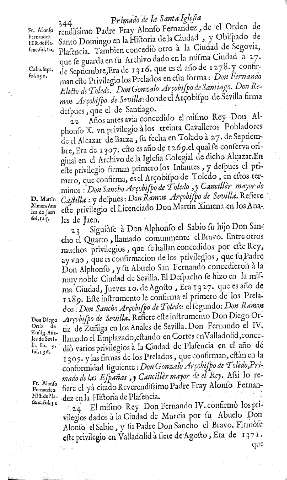 344 Primado de la Santa Iglesia
rendissimo Padre Fray Alonso Fernandez, de el Orden de
Santo Domingo en la Historia de la Ciudad, y Obispado de
Plasencia. Tambien concedió otro à la Ciudad de Segovia,
que se guarda en su Archivo dado en la misma Ciudad a 27.
de Septiembre, Era de 1316. que es año de 1278. y confir-
man este Privilegio los Prelados en esta forma: Don Fernando
Electo de Toledo. Don Gonzalo Arçobispo de Santiago. Don Re-
mon Arçobispo de Sevilla: donde el Arçobispo de Sevilla firma
despues, que el de Santiago.
22 Años antes avia concedido el mismo Rey Don Al-
phonso X. vn privilegio à los treinta Cavalleros Pobladores
de el Alcazar de Baeza, su fecha en Toledo à 27. de Septiem-
bre, Era de 1307. esto es año de 1269. el qual se conserva ori-
ginal en el Archivo de la Iglesia Colegial de dicho Alcazar. En
este privilegio firman primero los Infantes, y despues el pri-
mero, que confirma, es el Arçobispo de Toledo, en estos ter-
minos: Don Sancho Arçobispo de Toledo, y Canciller mayor de
Castilla: y despues: Don Ramon Arçobispo de Sevilla. Refiere
este privilegio el Licenciado Don Martin Ximena en los Ana-
les de Jaen.
23 Siguióse à Don Alphonso el Sabio su hijo Don San-
cho el Quarto, llamado comunmente el Bravo. Entre otros
muchos privilegios, que se hallan concedidos por este Rey,
ay vno, que es confirmacion de los privilegios, que su Padre
Don Alphonso, y su Abuelo San Fernando concedieron à la
muy noble Ciudad de Sevilla. El Despacho se hizo en la mis-
ma Ciudad, Jueves 10. de Agosto, Era 1327. que es año de
1289. Este instrumento le confirma el primero de los Prela-
dos: Don Sancho Arçobispo de Toledo; el segundo: Don Ramon
Arçobispo de Sevilla. Refiere este instrumento Don Diego Or-
tiz de Zuñiga en los Anales de Sevilla. Don Fernando el IV.
llamado el Emplazado, estando en Cortes en Valladolid, conce-
dió varios privilegios à la Ciudad de Plasencia en el año de
1305. y las firmas de los Prelados, que confirman, están en la
conformidad siguiente: Don Gonzalo Arçobispo de Toledo, Pri-
mado de las Españas, y Canciller mayor de el Rey. Assi lo re-
fiere el yà citado Reverendissimo Padre Fray Alonso Fernan-
dez en la Historia de Plasencia.
24 El mismo Rey Don Fernando IV. confirmó los pri-
vilegios dados à la Ciudad de Murcia por su Abuelo Don
Alonso el Sabio, y su Padre Don Sancho el Bravo. Firmóse
este privilegio en Valladolid à siete de Agosto, Era de 1371.
que
Fr. Alonso
Fernandez
D. Martin
Ximena Ana-
les de Jaen
Don Diego
Ortiz de
Zuñiga Ana-
Fr. Alonso
Fernandez